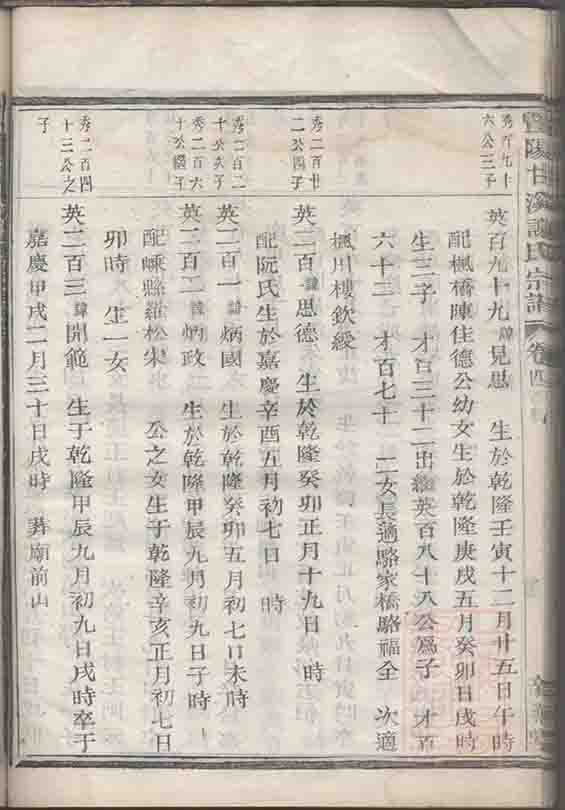 陽甘溪 氏宗譜 卷四
秀百九十
六公三子
英百九十九 諱 見思 生於乾隆壬寅十二月廿五日午時
配楓橋陳佳德公幼女生於乾隆庚戌五月癸卯日戌時
生三子 才百三十二出繼英百八十八公爲子 才百
六十三 才百七十 二女長適駱家橋駱福全 次適
楓川樓欽綬
秀二百廿
二公四子
英二百 諱 思德 生於乾隆癸卯正月十九日 時
配阮氏生於嘉慶辛酉五月初七日 時
秀二百二
十公 子
英二百一 諱 炳國 生於乾隆癸卯五月初七日未時
秀二百六
十公 子
英二百二 諱 炳政 生於乾隆甲辰九月初九日子時
配嵊縣羅松宋 公之女生于乾隆辛亥正月初七日
卯時 生一女
秀二百四
十三公之
子
英二百三 諱 開範 生于乾隆甲辰九月初九日戌時卒于
嘉慶甲戌二月三十日戌時 葬廟前山